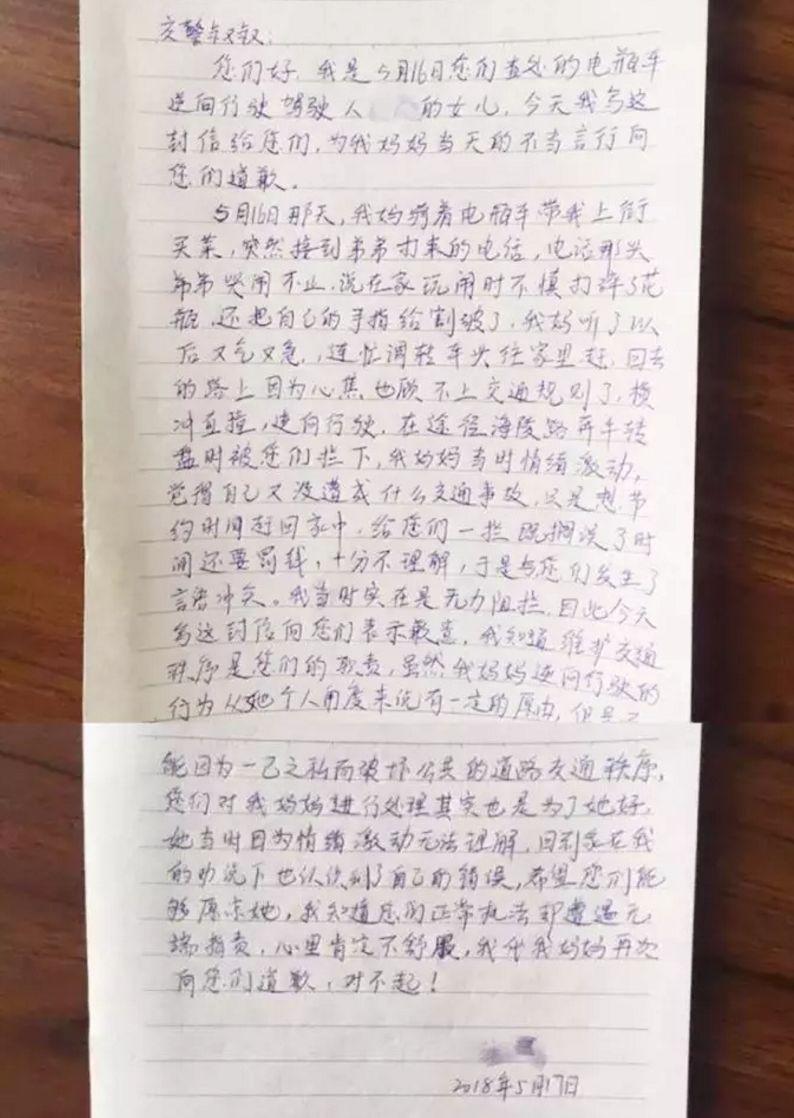 交警叔叔:
您们好,我是5月16日您们查处的电瓶车
逆向行驶驾驶人 的女儿,今天我写这
封信给您们,为我妈妈当天的不当言行向
您们道歉。
5月16日那天,我妈骑着电瓶车带我上街
买菜,突然接到弟弟打来的电话,电话那头
弟弟哭闹不止,说在家玩闹时不慎打碎了花
瓶,还把自己的手指给割破了,我妈听了以
后又气又急,连忙调转车头往家里赶,回去
的路上因为心焦也顾不上交通规则了,横
冲直撞,逆向行驶,在途径海陵路奔牛转
盘时被您们拦下,我妈妈当时情绪激动,
觉得自己又没造成什么交通事故,只是想节
约时间赶回家中,给您们一拦既搁误了时
间还要罚钱,十分不理解,于是与您们发生了
言语冲突。我当时实在是无力阻拦,因此今天
写这封信向您们表示歉意,我知道维护交通
秩序是您们的职责,虽然我妈妈逆向行驶的
行为从她个人角度来说有一定的原由,但是不
能因为一己之私而破坏公共的道路交通秩序,
您们对我妈妈进行处理其实也是为了她好,
她当时因为情绪激动无法理解,回到家在我
的劝说下也认识到了自己的错误,希望您们能
够原谅她,我知道您们正常执法却遭遇无
端指责,心里肯定不舒服,我代我妈妈再次
向您们道歉,对不起!
2018年5月17日